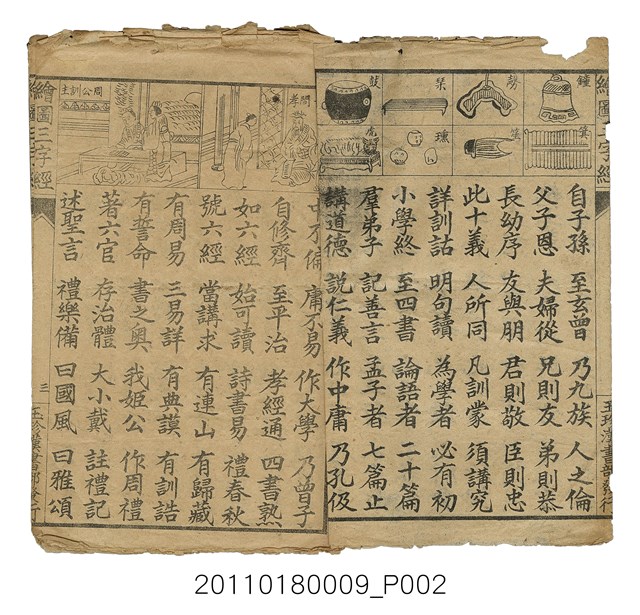 繪圖三字經
鐘
琴
鼓
壎
虎
自子孫 至玄曾 乃九族 人之倫
父子恩 夫婦從 兄則友 弟則恭
長幼序 友與朋 君則敬 臣則忠
此十義 人所同 凡訓蒙 須講究
詳訓詁 明句讀 為學者 必有初
小學終 至四書 論語者 二十篇
羣弟子 記善言 孟子者 七篇止
講道德 說仁義 作中庸 乃孔伋
玉珍漢書部發行
問孝
周公訓主
中不偏 庸不易 作大學 乃曾子
自修齊 至平治 孝經通 四書熟
如六經 始可讀 詩書易 禮春秋
號六經 當講求 有連山 有歸藏
有周易 三易詳 有典謨 有訓誥
有誓命 書之奧 我姬公 作周禮
著六官 存治體 大小戴 註禮記
述聖言 禮樂備 曰國風 曰雅頌
繪圖三字經
三
玉珍漢書部發行
20110180009_P002